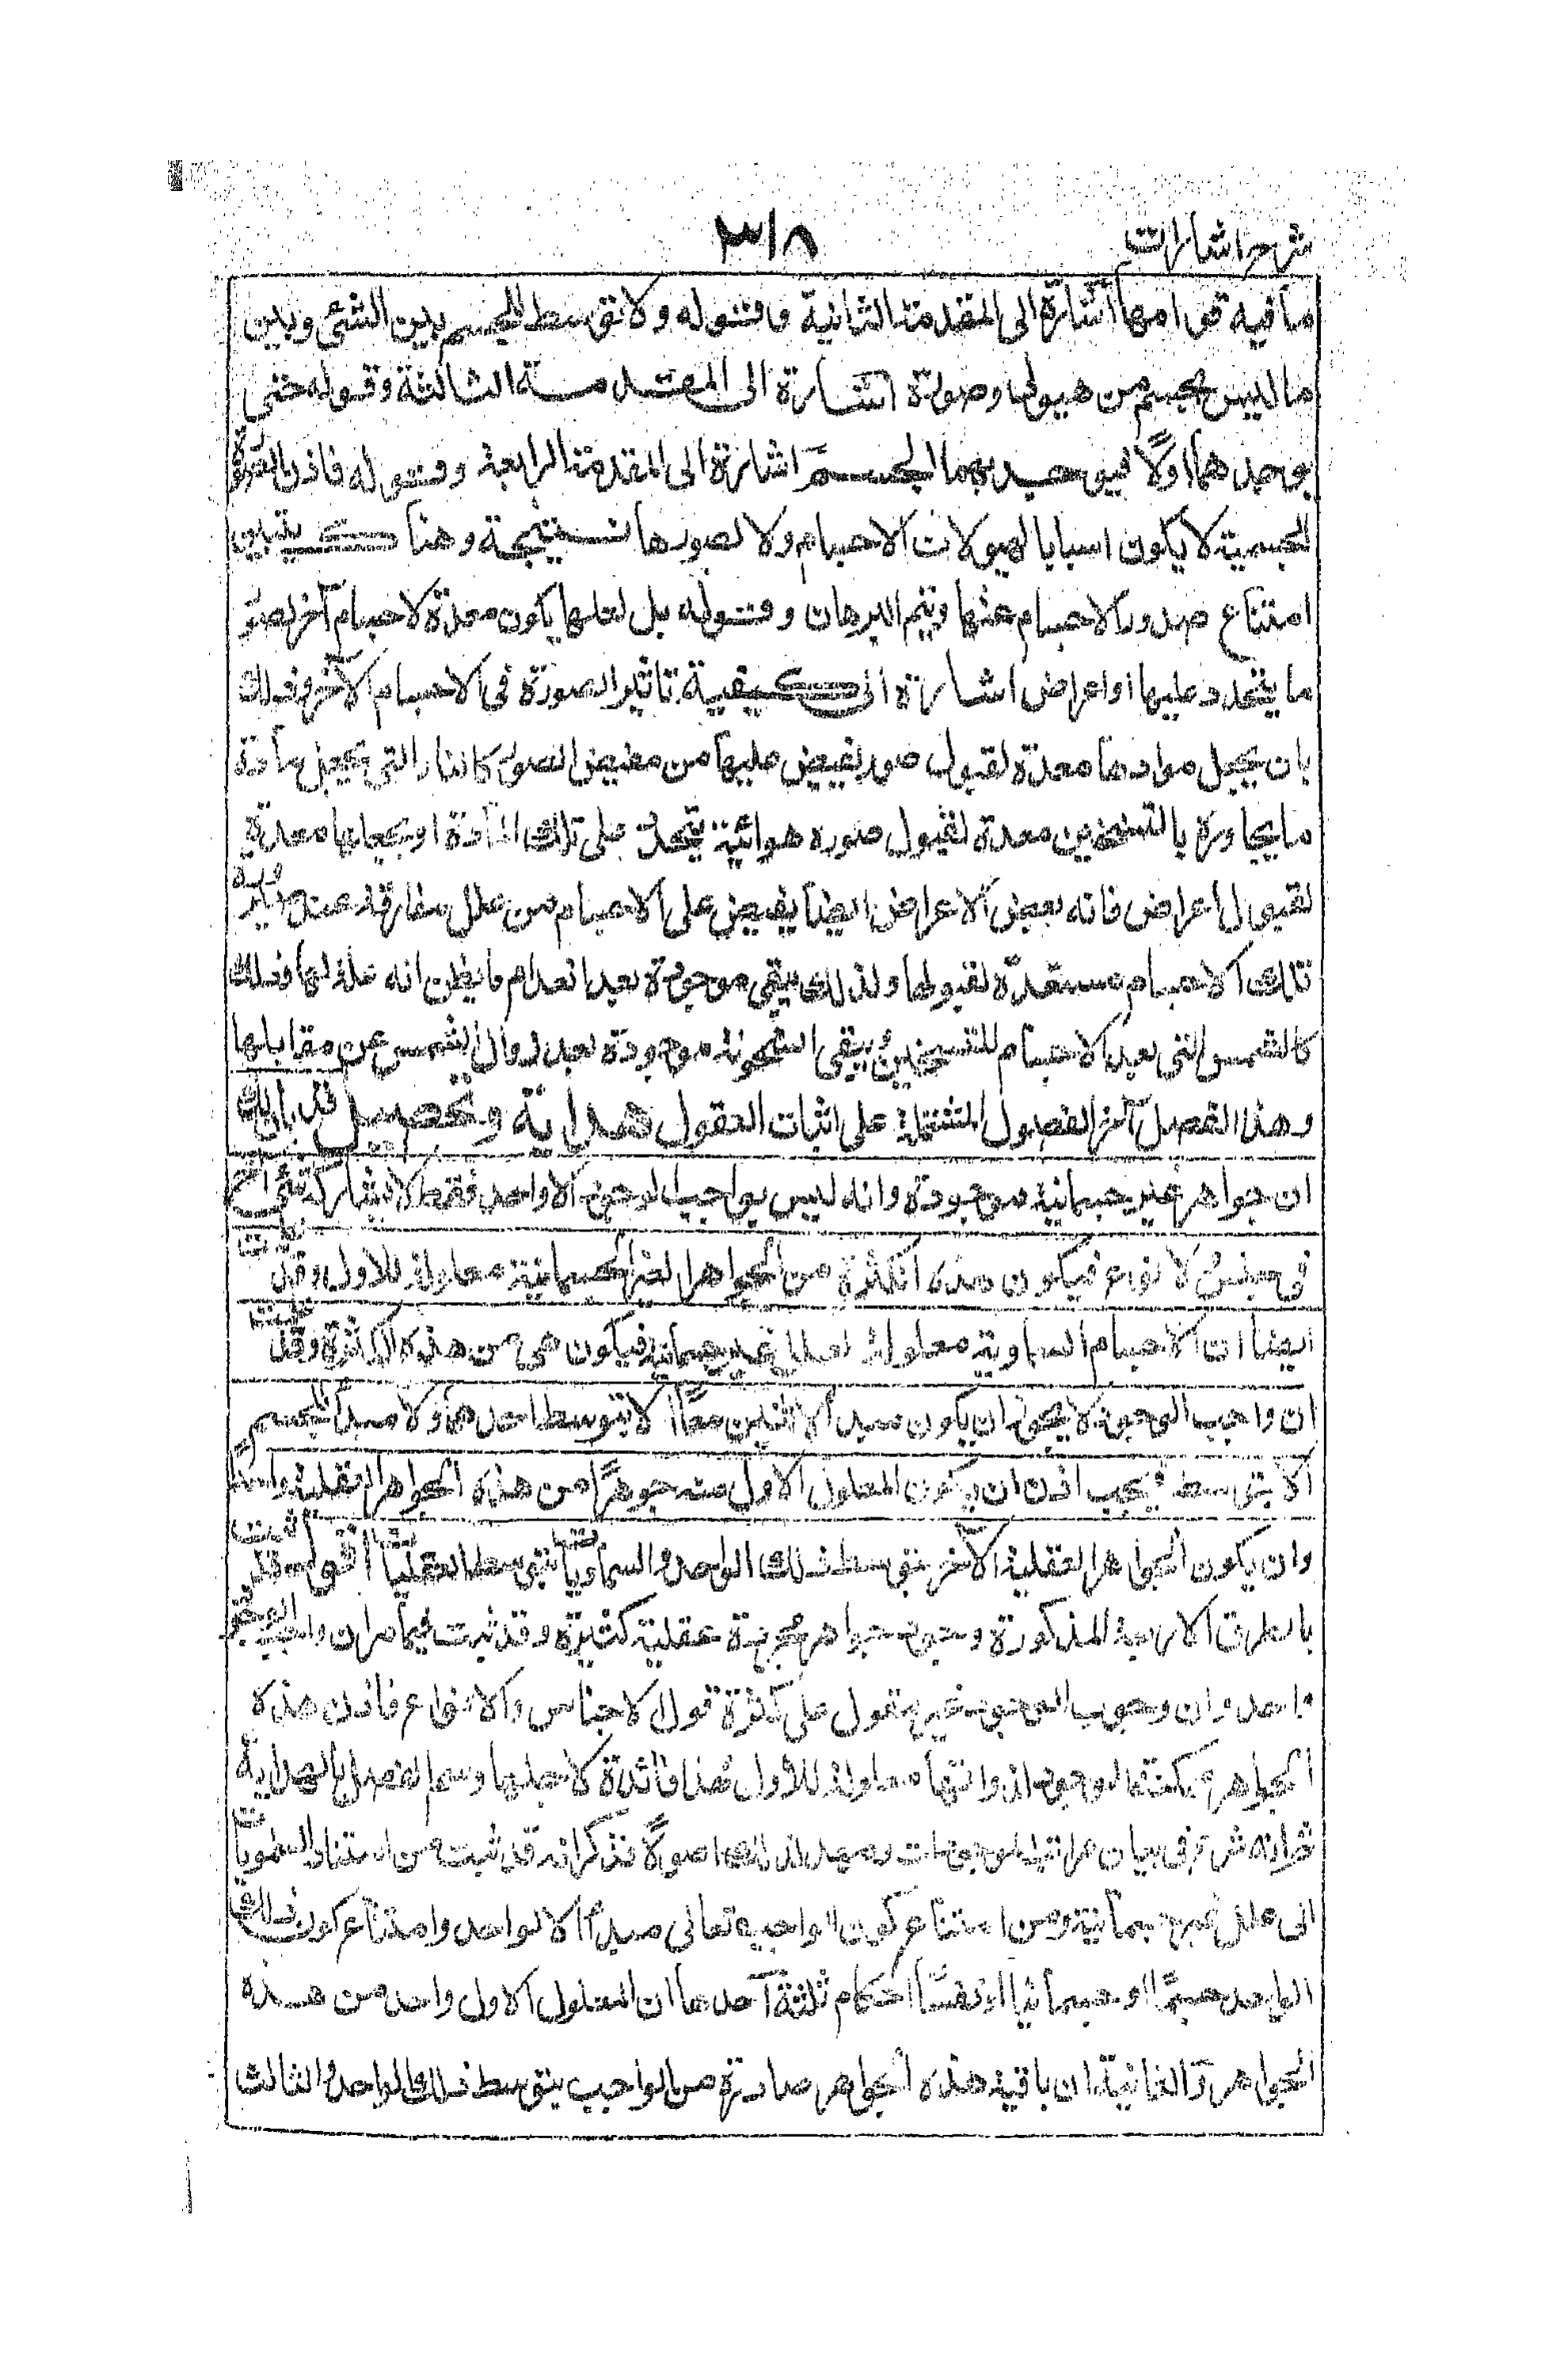 شرح اشارات
٣١٨
ما فيه قوامها اشارة الى المقدمة الثانية وقوله ولا توسط للجسم بين الشئ وبين
ما ليس بجسم من هيولى وصورة اشارة الى المقدمة الثالثة وقوله حتى
يوجدهما اولا فيوجد بهما الجسم اشارة الى المقدمة الرابعة وقوله فاذن الصورة
الجسمية لا يكون اسبابا لهيولات الاجسام ولا لصورها نتيجة وهناك يتبين
امتناع صدور الاجسام عنها ويتم البرهان وقوله بل لعلها يكون معدة لاجسام آخر لصور
ما يتجدد عليها او اعراض اشارة الى كيفية تاثير الصورة فى الاجسام الاخر وذلك
بان يجعل موادها معدة لقبول صور يفيض عليها من مفيض الصور كالنار التى يجعل مادة
ما يجاوره بالتسخين معدة لقبول صوره هوائية يتجدد على تلك المادة او يجعلها معدة
لقبول اعراض فانه بعض الاعراض ايضا يفيض على الاجسام من علل مفارقة عند
تلك الاجسام مستعدة لقبولها ولذلك يبقى موجودة بعد انعدام ما يظن انه علة لها وذلك
كالشمس التى يعد الاجسام للتسخين ويبقى السخونة موجودة بعد زوال الشمس عن مقابلها
وهذا الفصل آخر الفصول المشتملة على اثبات العقول هداية وتحصيل قد بان لك
ان جواهر غير جسمانية موجودة وانه ليس بواجب الوجود الا واحد فقط لا يشارك شيئا آخر
فى جنس ولا نوع فيكون هذه الكثرة من الجواهر الغير الجسمانية معلولة للاول وقد علمت
ايضا ان الاجسام السماوية معلولة لعلل غير جسمانية فيكون هى من هذه الكثرة وقد علمت
ان واجب الوجود لا يجوز ان يكون مبدأ لاثنين معا الا بتوسط احدهما ولا مبدأ للجسم
الا بتوسط فيجب اذن ان يكون المعلول الاول منه جوهرا من هذه الجواهر العقلية واحدا
وان يكون الجواهر العقلية الاخر بتوسط ذلك الواحد والسماويات بتوسط العقليات اقول قد ثبت
بالطرق الاربعة المذكورة وجود جواهر مجردة عقلية كثيرة وقد ثبت فيما مر ان واجب الوجود
واحد وان وجوب الوجود غير مقول على كثرة قول الاجناس والانواع فاذن هذه
الجواهر ممكنة الوجود وانها معلولة للاول هذا فائدة لاجلها وسم الفصل بالهداية
ثم انه شرع فى بيان مراتب الموجودات ومهد لذلك اصولا فذكر انه قد ثبت من استناد السماويات
الى علل غير جسمانية ومن امتناع كون الواجب تعالى مبدأ الا لواحد وامتناع كون ذلك
الواحد جسما او جسمانيا او نفسا احكام ثلثة احدها ان المعلول الاول واحد من هذه
الجواهر والثانية ان باقية هذه الجواهر صادرة من الواجب بتوسط ذلك الواحد والثالث